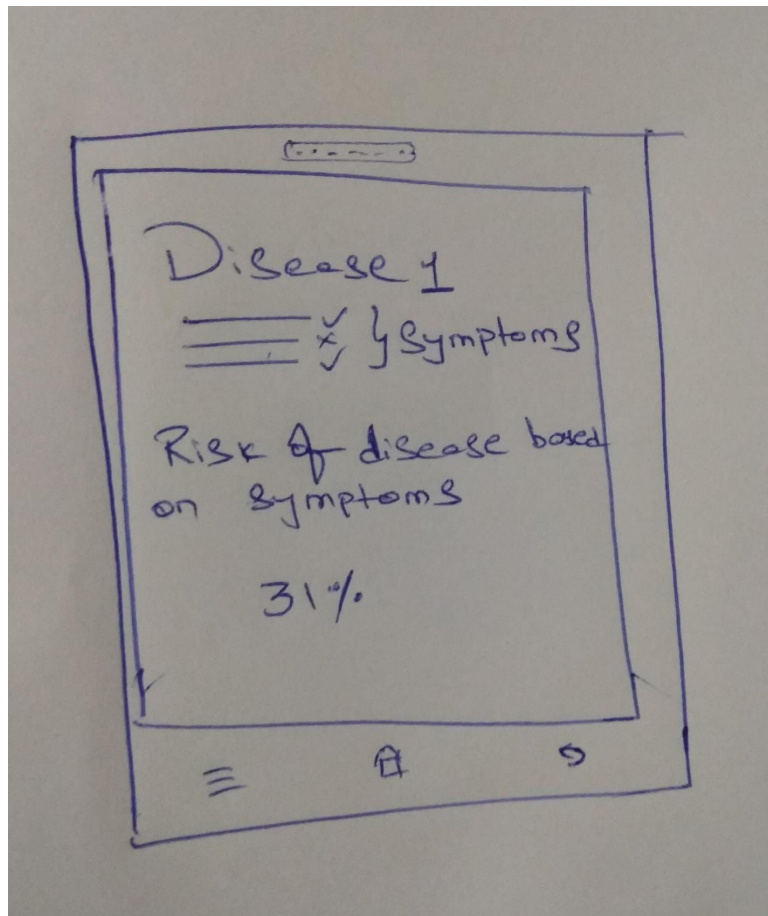 Disease 1
✓
x } Symptoms
✓
Risk of disease based
on symptoms
31%